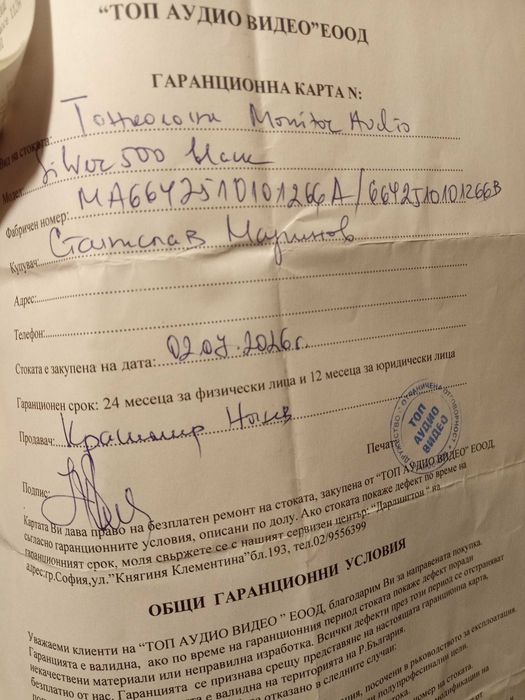 “ТОП АУДИО ВИДЕО”ЕООД
ГАРАНЦИОННА КАРТА N:
Вид на стоката: Тонколони Monitor Audio
Модел: Silver 500 black
Фабричен номер: MA6642510101266A/6642510101266B
Купувач: Станислав Маринов
Адрес:
Телефон:
Стоката е закупена на дата: 02.07.2026г.
Гаранционен срок: 24 месеца за физически лица и 12 месеца за юридически лица
Продавач: Красимир
Печат:
ДРУЖЕСТВО С ОГРАНИЧЕНА ОТГОВОРНОСТ
ТОП
АУДИО
ВИДЕО
Подпис:
Картата Ви дава право на безплатен ремонт на стоката, закупена от “ТОП АУДИО ВИДЕО” ЕООД,
съгласно гаранционните условия, описани по долу. Ако стоката покаже дефект по време на
гаранционният срок, моля свържете се с нашия сервизен център: “Дарлингтон “ на
адрес:гр.София,ул.”Княгиня Клементина”бл.193, тел.02/9556399
ОБЩИ ГАРАНЦИОННИ УСЛОВИЯ
Уважаеми клиенти на “ТОП АУДИО ВИДЕО ” ЕООД, благодарим Ви за направената покупка.
Гаранцията е валидна, ако по време на гаранционния период стоката покаже дефект поради
некачествени материали или неправилна изработка. Всички дефекти през този период се отстраняват
безплатно от нас. Гаранцията се признава срещу представяне на настоящата гаранционна карта,
валидна на територията на Р.България.
отказано в следните случаи:
посочени в ръководството за експлоатация.
полупрофесионални цели.
на стоката.